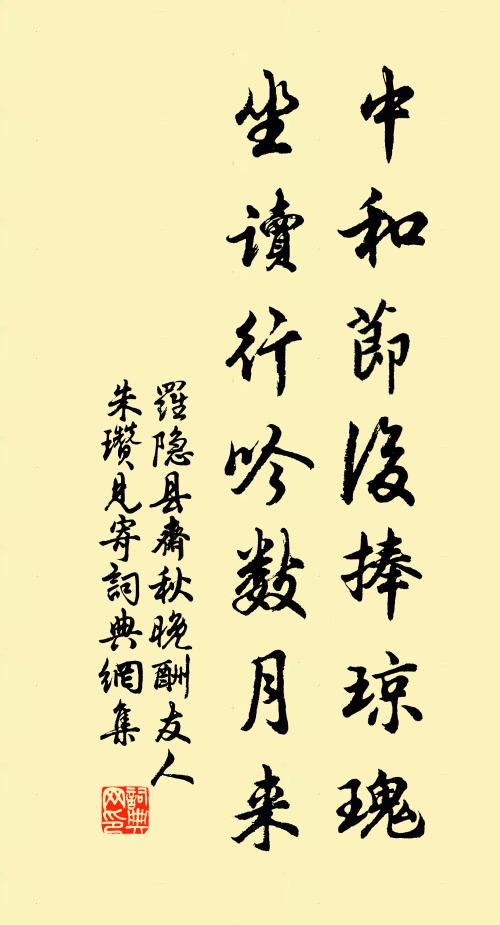 中和節後捧琼瑰
坐讀行吟數月来
羅隐县齋秋晚酬友人
朱瓚見寄詞典網集
詞典
网印